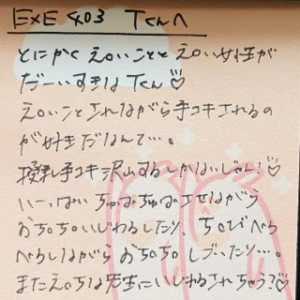 EXE 403 Tくんへ
とにかくえろいことえろい女性が
だーいすきなTくん♡
えろいことされながら手コキされるの
が好きだなんて…。
授乳手コキ沢山するしかないじゃん!♡
いーっぱいちゅぱちゅぱさせながら
おち〇ちんいじめるしたり、ち〇びぺろ
ぺろしながらおち〇ちんしごいたり…。
またえろちは先生にいじめるされちゃう?♡